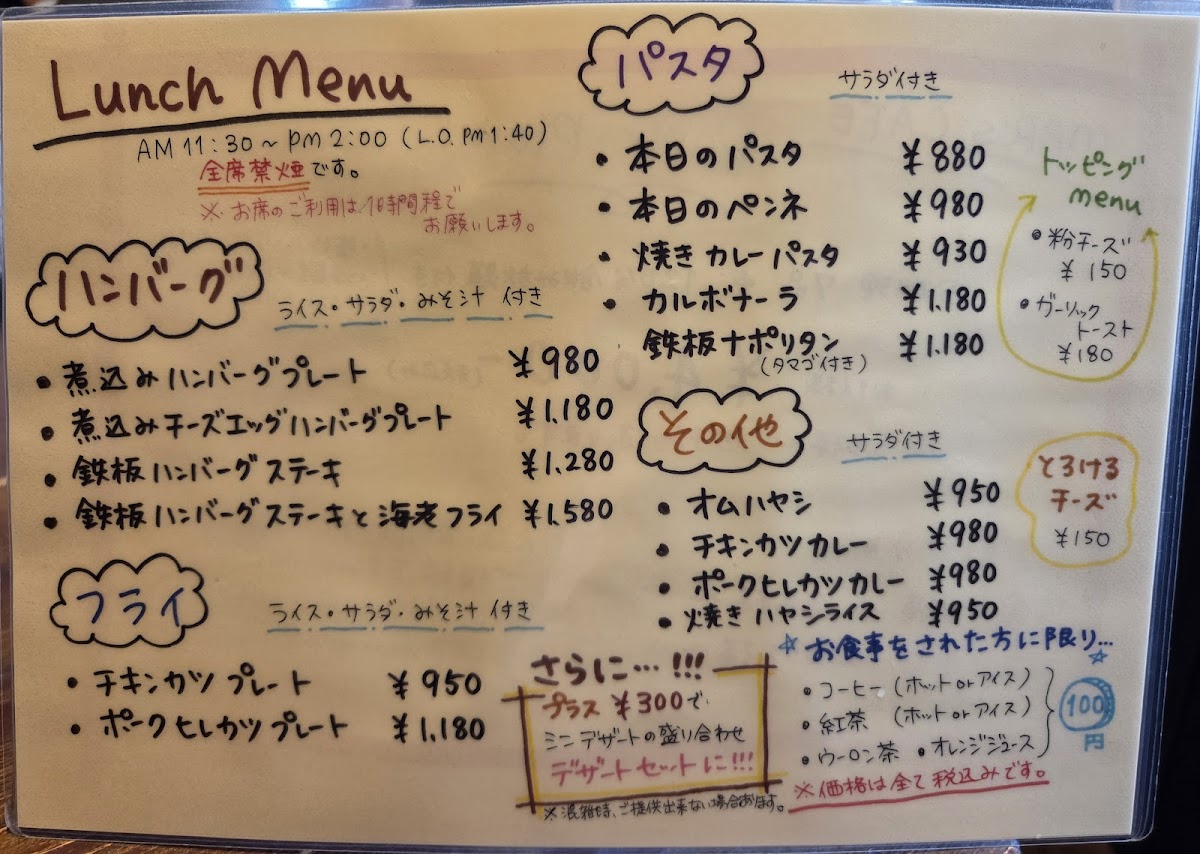 Lunch Menu
AM 11:30~pm 2:00 (L.O. pm 1:40)
全席禁煙です。
※お席のご利用は1時間程で
お願いします。
ハンバーグ
ライス・サラダ・みそ汁 付き
• 煮込みハンバーグプレート ¥980
• 煮込みチーズエッグハンバーグプレート ¥1.180
• 鉄板ハンバーグステーキ ¥1.280
• 鉄板ハンバーグステーキと海老フライ ¥1.580
フライ
ライス・サラダ・みそ汁 付き
• チキンカツプレート ¥950
• ポークヒレカツプレート ¥1.180
パスタ
サラダ付き
• 本日のパスタ ¥880
• 本日のペンネ ¥980
• 焼きカレーパスタ ¥930
• カルボナーラ ¥1.180
鉄板ナポリタン ¥1.180
(タマゴ付き)
トッピング
menu
• 粉チーズ
¥150
• ガーリック
トースト
¥180
その他
サラダ付き
• オムハヤシ ¥950
• チキンカツカレー ¥980
• ポークヒレカツカレー ¥980
• 焼きハヤシライス ¥950
とろける
チーズ
¥150
さらに…!!!
プラス ¥300で
ミニデザートの盛り合わせ
デザートセットに!!!
※混雑時、ご提供出来ない場合あります。
☆お食事をされた方に限り…☆
• コーヒー (ホット or アイス)
• 紅茶 (ホット or アイス)
• ウーロン茶 • オレンジジュース
100
円
※価格は全て税込みです。